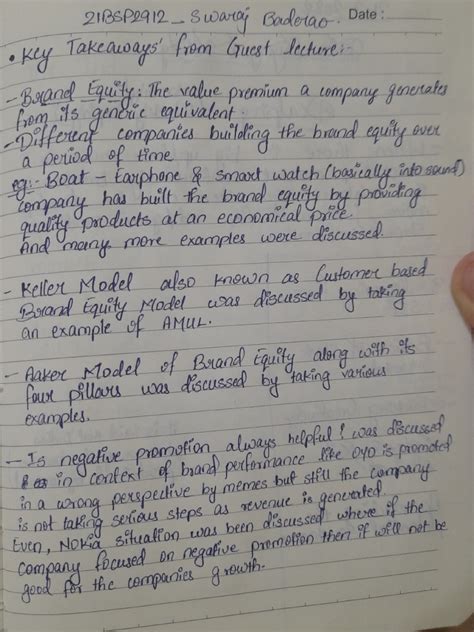 21BSP2912 _ Swaraj Baderao. Date:
• Key Takeaways from Guest lecture:-
- Brand Equity: The value premium a company generates
from its generic equivalent.
- Different companies building the brand equity over
a period of time
eg:- Boat - Earphone & smart watch (basically into sound)
company has built the brand equity by providing
quality products at an economical price.
And many more examples were discussed.
- Keller Model also known as Customer based
Brand Equity Model was discussed by taking
an example of AMUL.
- Aaker Model of Brand Equity along with its
four pillars was discussed by taking various
examples.
- Is negative promotion always helpful? was discussed
in context of brand performance like OYO is promoted
in a wrong perspective by memes but still the company
is not taking serious steps as revenue is generated.
Even, Nokia situation was been discussed where if the
company focused on negative promotion then it will not be
good for the companies growth.